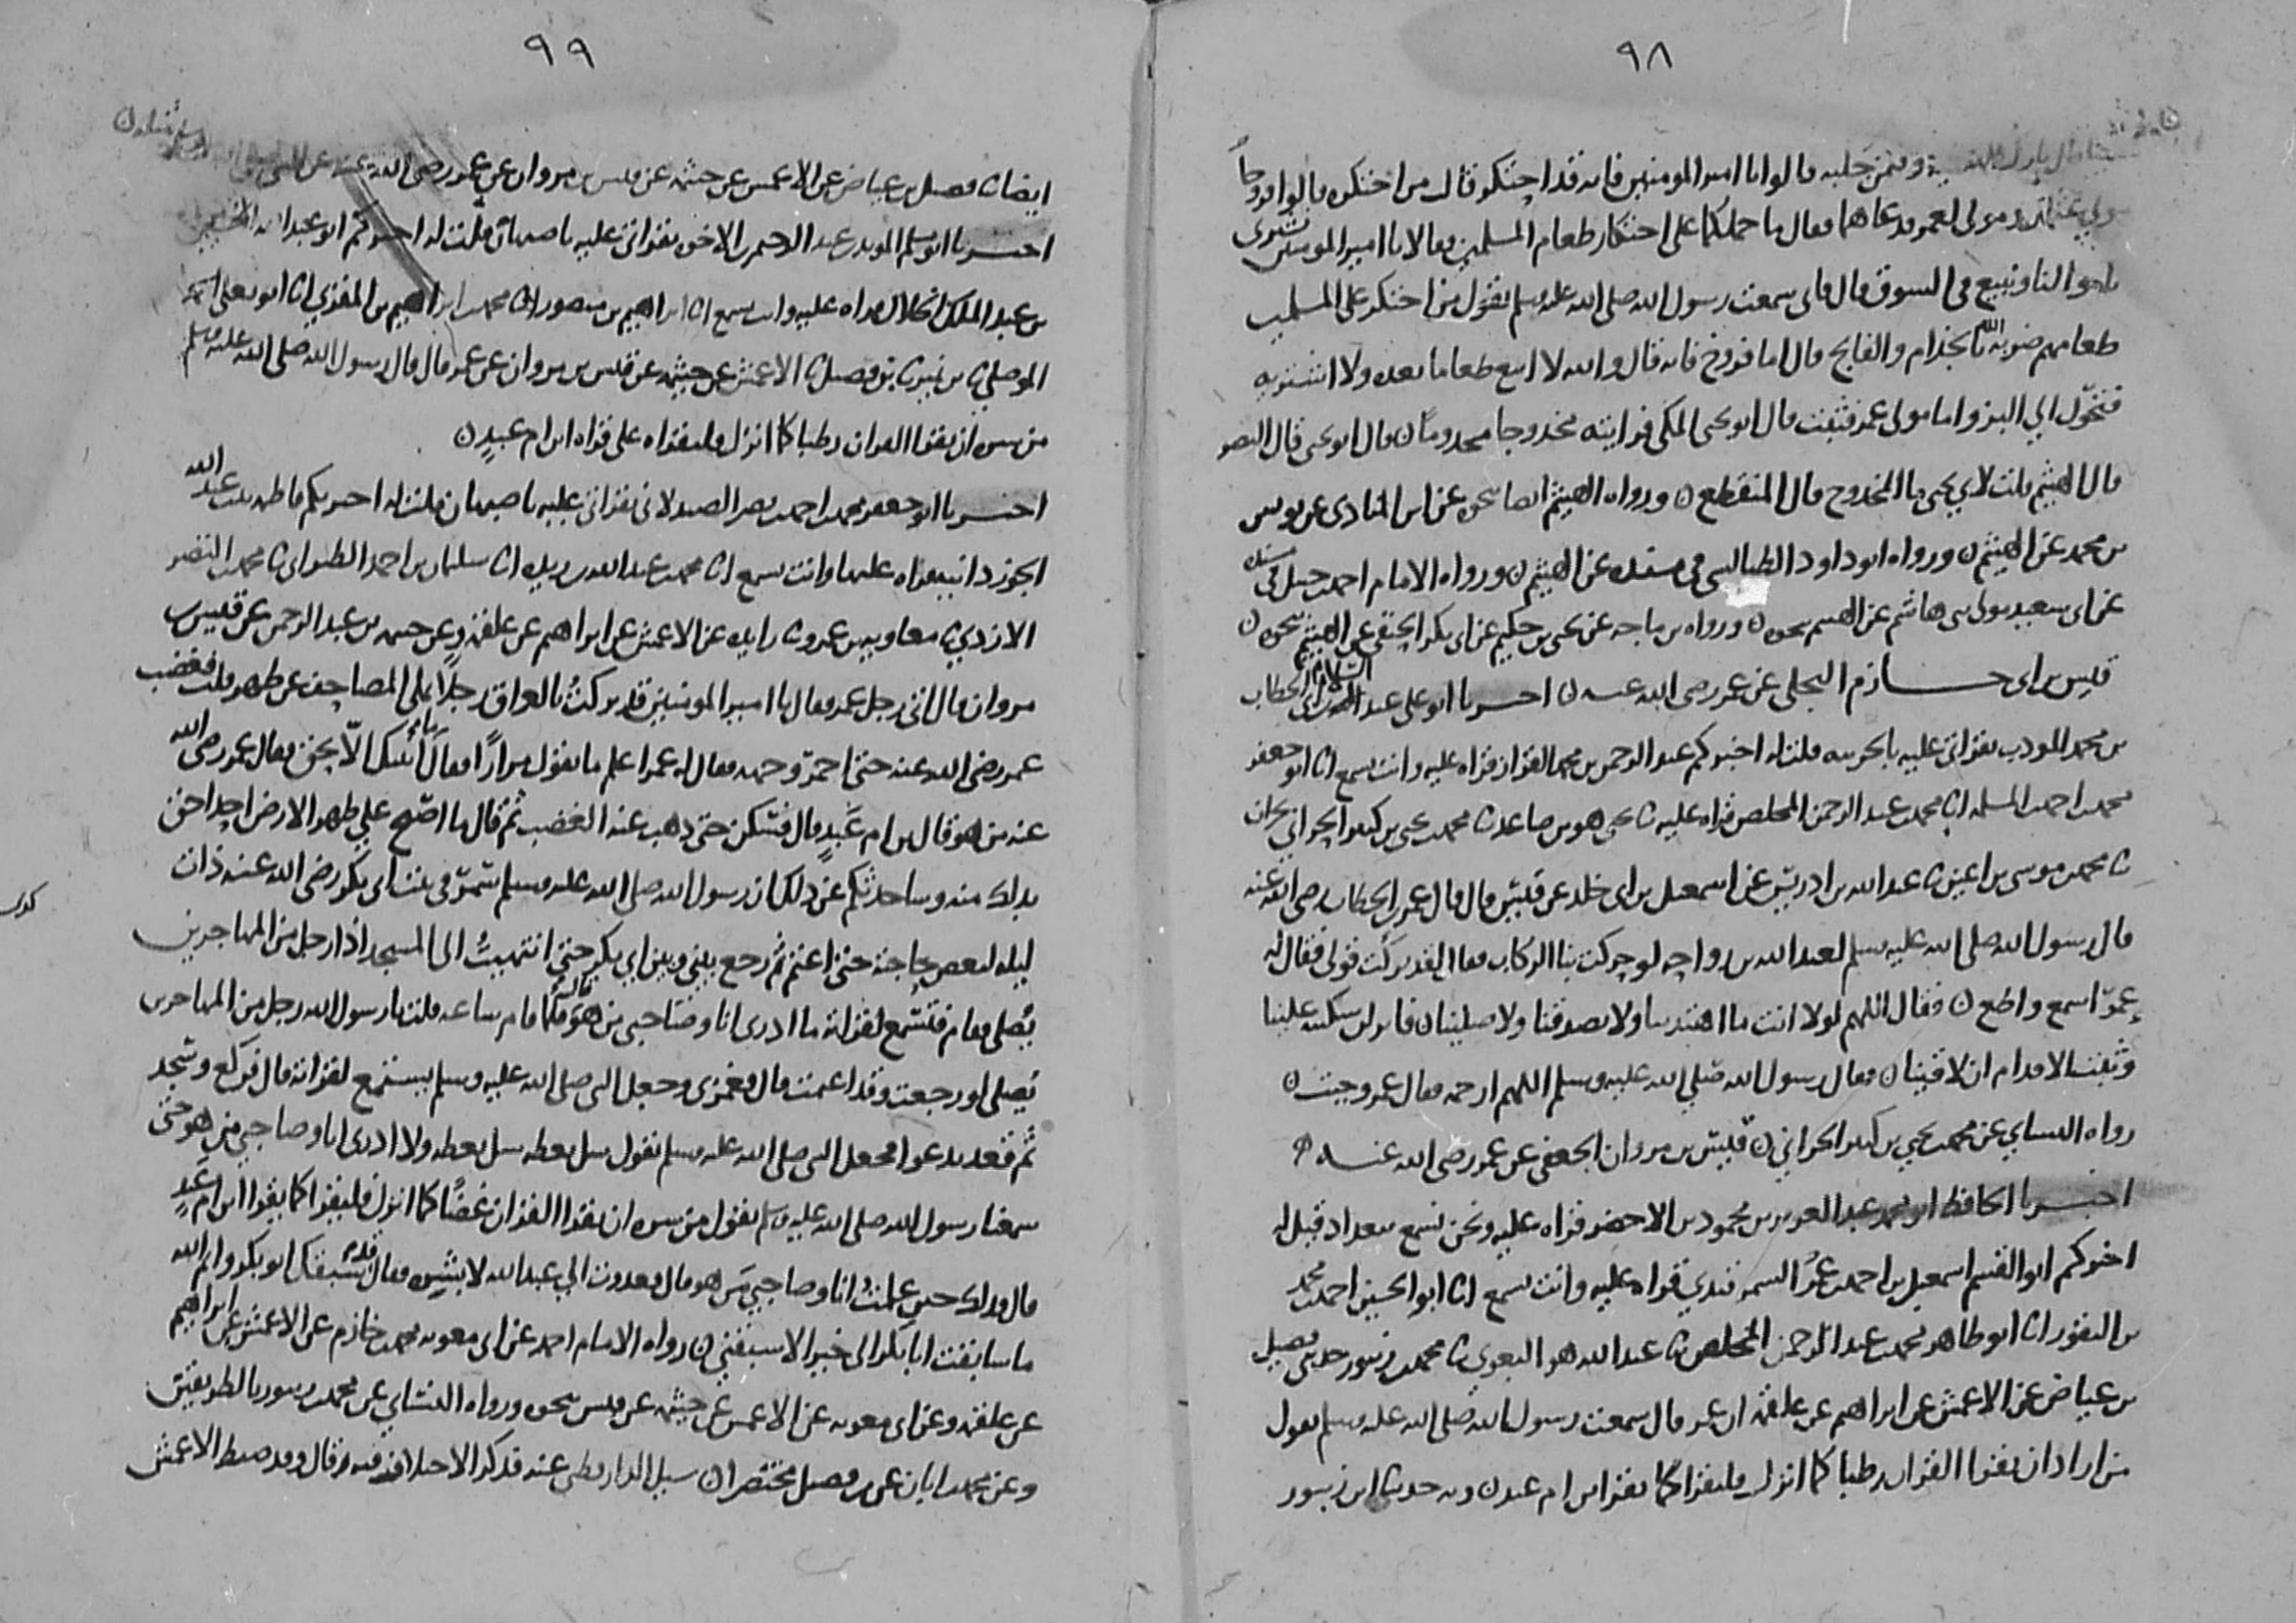 ٩٨
بارك الله فيه وفيمن جلبه قالوا يا امير المومنين فانه قد احتكر قال من احتكره قالوا فروخ
مولى عثمن ومولى لعمر فدعاهما فقال ما حملكما على احتكار طعام المسلمين فقالا يا امير المومنين نشترى
باموالنا ونبيع في السوق قال فاني سمعت رسول الله صلى الله عليه وسلم يقول من احتكر على المسلمين
طعامهم ضربه الله بالجذام والفالج قال اما فروخ فانه قال والله لا ابيع طعاما بعده ولا اشتريه
فتحول الي البز واما مولى عمر فثبت قال ابو يحيى المكى فرايته مخدوجا مجدوما ن قال ابو يحيى قال النصر
قال الهيثم قلت لابي يحيى ما المخدوج قال المنقطع ن ورواه الهيثم ايضا نحوه عن ابن المنادى عن يونس
بن محمد عن الهيثم ن ورواه ابو داود الطيالسى فى مسنده عن الهيثم ن ورواه الامام احمد بن حنبل في مسنده
عن ابى سعيد مولى بنى هاشم عن الهيثم نحوه ن ورواه بن ماجه عن يحيى بن حكيم عن ابى بكر الحنفي عن الهيثم نحوه ن
قيس بن ابى حازم البجلى عن عمر رضى الله عنه ن اخبرنا ابو على عبد السلام بن ابى الخطاب
بن محمد المودب بقراتى عليه بالحربيه قلت له اخبركم عبد الرحمن بن محمد القزاز قراه عليه وانت تسمع انا ابو جعفر
محمد بن احمد بن المسلمه انا محمد بن عبد الرحمن المخلص قراه عليه ثنا يحيى هو بن صاعد ثنا محمد بن يحيى بن كثير الحراني بحران
ثنا محمد بن موسى بن اعين ثنا عبد الله بن ادريس عن اسمعيل بن ابى خلد عن قيس قال قال عمر بن الخطاب رضى الله عنه
قال رسول الله صلى الله عليه وسلم لعبد الله بن رواحه لو حركت بنا الركاب فقال لقد تركت قولى فقال له
عمر اسمع واطع ن فقال اللهم لولا انت ما اهتدينا ولا تصدقنا ولا صلينا ن فانزلن سكينه علينا
وثبت الاقدام ان لاقينا ن فقال رسول الله صلى الله عليه وسلم اللهم ارحمه فقال عمر وجبت ن
رواه النساي عن محمد بن يحيى بن كثير الحراني ن قيس بن مروان الجعفى عن عمر رضى الله عنه
اخبرنا الحافظ ابو محمد عبد العزيز بن محمود بن الاخضر قراه عليه ونحن نسمع ببغداد قيل له
اخبركم ابو القسم اسمعيل بن احمد بن عمر السمرقندي قراه عليه وانت تسمع انا ابو الحسين احمد بن محمد
بن النقور انا ابو طاهر محمد بن عبد الرحمن المخلص ثنا عبد الله هو البغوى ثنا محمد بن زنبور حدثنى فضيل
بن عياض عن الاعمش عن ابراهيم عن علقمه ان عمر قال سمعت رسول الله صلى الله عليه وسلم يقول
من اراد ان يقرا القران رطبا كما انزل فليقراه كما يقرا ابن ام عبد ن وبه حدثنا ابن زنبور
٩٩
ايضا ثنا فضيل بن عياض عن الاعمش عن خيثمه عن قيس بن مروان عن عمر رضى الله عنه عن النبى صلى الله عليه وسلم مثله ن
اخبرنا ابو مسلم المويد بن عبد الرحيم بن الاخوه بقراتى عليه باصبهان قلت له اخبركم ابو عبد الله الحسين
بن عبد الملك الخلال قراه عليه وانت تسمع انا ابراهيم بن منصور انا محمد بن ابراهيم بن المقري انا ابو يعلى احمد
الموصلي ثنا بن نمير ثنا بن فضيل ثنا الاعمش عن خيثمه عن قيس بن مروان عن عمر قال قال رسول الله صلى الله عليه وسلم
من سره ان يقرا القران رطبا كما انزل فليقراه على قراه ابن ام عبد ن
اخبرنا ابو جعفر محمد بن احمد بن نصر الصيدلانى بقراتى عليه باصبهان قلت له اخبرتكم فاطمه بنت عبد الله
الجوزدانيه قراه عليها وانت تسمع انا محمد بن عبد الله بن ريذه انا سليمان بن احمد الطبرانى ثنا محمد بن النضر
الازدي ثنا معاويه بن عمرو ثنا زايده عن الاعمش عن ابراهيم عن علقمه وعن خيثمه بن عبد الرحمن عن قيس بن
مروان قال اتى رجل عمر فقال يا امير المومنين قد تركت بالعراق رجلا يملى المصاحف عن ظهر قلب فغضب
عمر رضى الله عنه حتى احمر وجهه فقال له عمر اعلم ما تقول مرارا فقال ما اتيتك الا بحق فقال عمر رضى الله
عنه من هو قال بن ام عبد قال فسكن حتى ذهب عنه الغضب ثم قال ما اصبح علي ظهر الارض احد احق
بذلك منه وساحدثكم عن ذلك ان رسول الله صلى الله عليه وسلم سمر فى بيت ابى بكر رضى الله عنه ذات
ليله لبعض حاجته حتى اعتم ثم رجع بيني وبين ابي بكر حتى انتهيت الى المسجد اذا رجل من المهاجرين
يصلى فقام فتسمع لقراته ما ادرى انا وصاحبي من هو فلما قام ساعه قلت يا رسول الله رجل من المهاجرين
يصلى لو رجعت وقد اعتمت قال فغمزنى وجعل النبى صلى الله عليه وسلم يستمع لقراته قال فركع وسجد
ثم قعد يدعوا فجعل النبى صلى الله عليه وسلم يقول سل تعطه سل تعطه ولا ادرى انا وصاحبي من هو حتى
سمعنا رسول الله صلى الله عليه وسلم يقول من سره ان يقرا القران غضا كما انزل فليقرا كما يقرا ابن ام عبد
قال فذلك حين علمت انا وصاحبي من هو قال فغدوت الي عبد الله لابشره فقال قد سبقك ابو بكر وايم الله
ما سابقت ابا بكر الى خير الا سبقني ن رواه الامام احمد عن ابى معويه محمد بن خازم عن الاعمش عن ابراهيم
عن علقمه وعن ابى معويه عن الاعمش عن خيثمه عن قيس نحوه ورواه النساي عن محمد بن زنبور بالطريقين
وعن محمد بن ابان عن بن فضيل مختصرا ن سيل الدارقطنى عنه فذكر الاختلاف فيه وقال وقد ضبط الاعمش